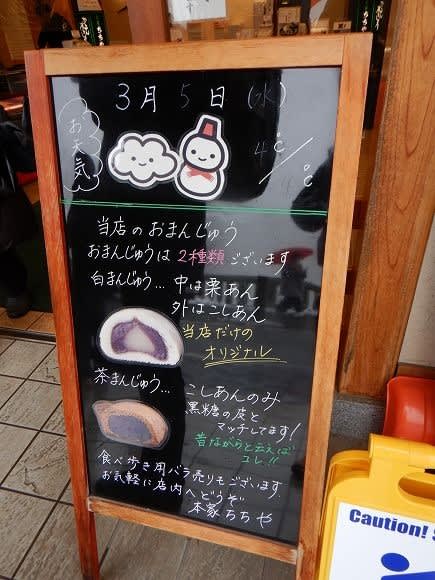 3月5日(水)
お天気
4℃/4℃
当店のおまんじゅう
おまんじゅうは2種類ございます
白まんじゅう… 中は栗あん
外はこしあん
当店だけの
オリジナル
茶まんじゅう… こしあんのみ
黒糖の皮と
マッチしてます!
昔ながらと云えば
コレ!!
食べ歩き用バラ売りもございます
お気軽に店内へどうぞ
本家ちちや
Caution!